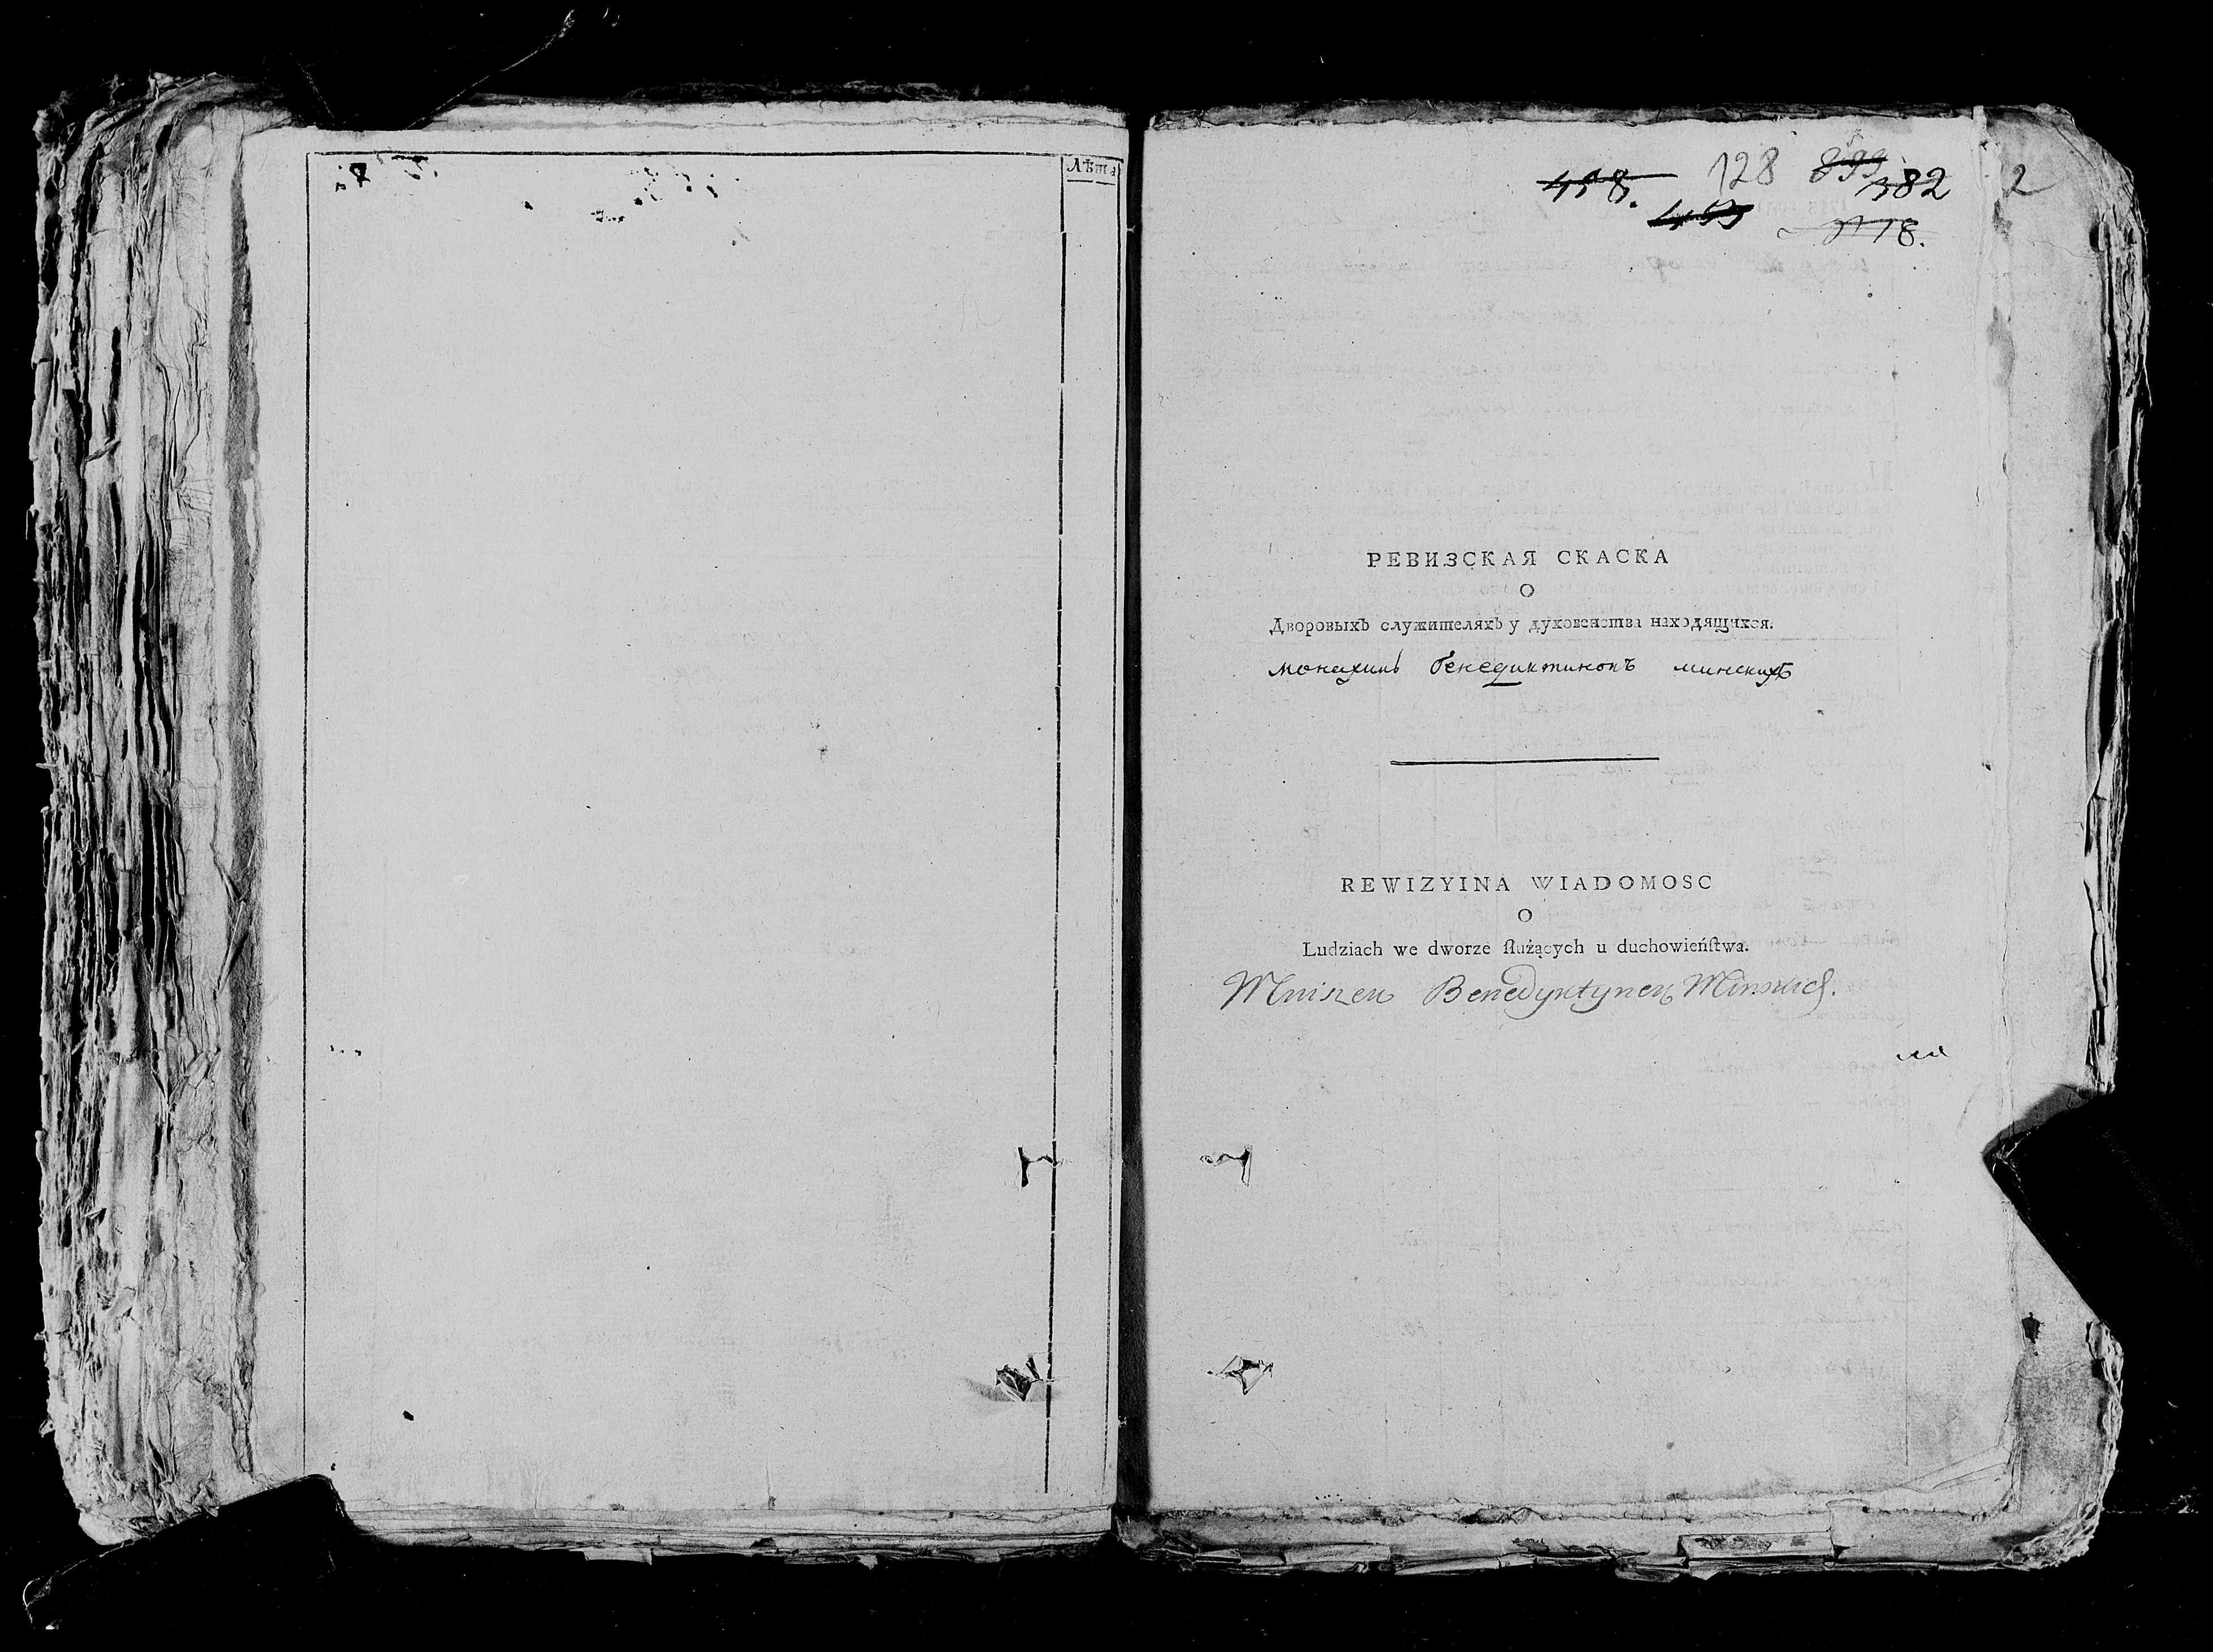 Лѣта
128 899 382 2
458.
N 18.
РЕВИЗСКАЯ СКАСКА
О
Дворовыхъ служителяхъ у духовенства находящихся.
монахинь бенедиктинокъ минскихъ
REWIZYINA WIADOMOSC
O
Ludziach we dworze ſłużących u duchowieńſtwa.
Mniszek Benedyktynek Minskich.